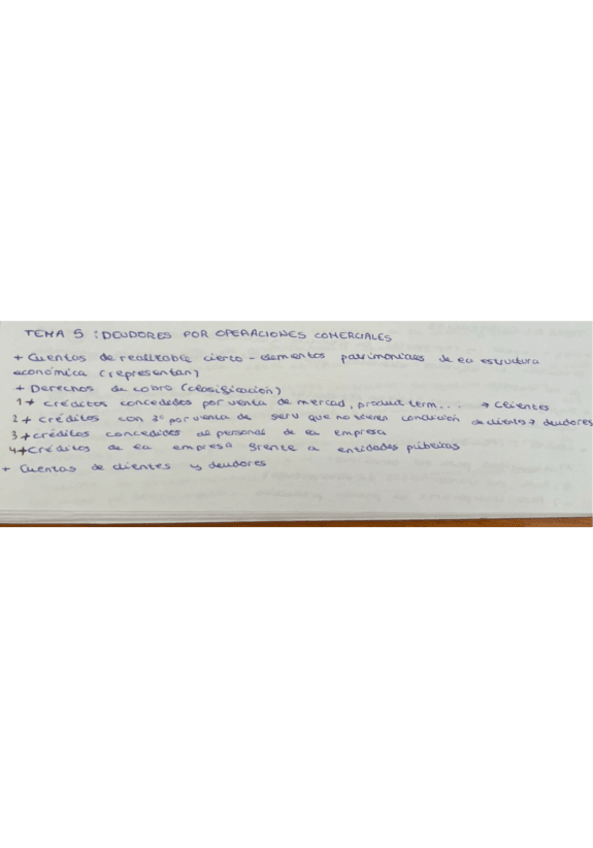 TEMA 5 : DEUDORES POR OPERACIONES COMERCIALES
+ Cuentas de realizable cierto - elementos patrimoniales de la estructura
económica (representan)
+ Derechos de cobro (clasificación)
1+ créditos concedidos por venta de mercad, product term... → Clientes
2+ créditos con 3º por venta de serv que no tienen condición de cliente → deudores
3+ créditos concedidos al personal de la empresa
4+ créditos de la empresa frente a entidades públicas
+ Cuentas de clientes y deudores